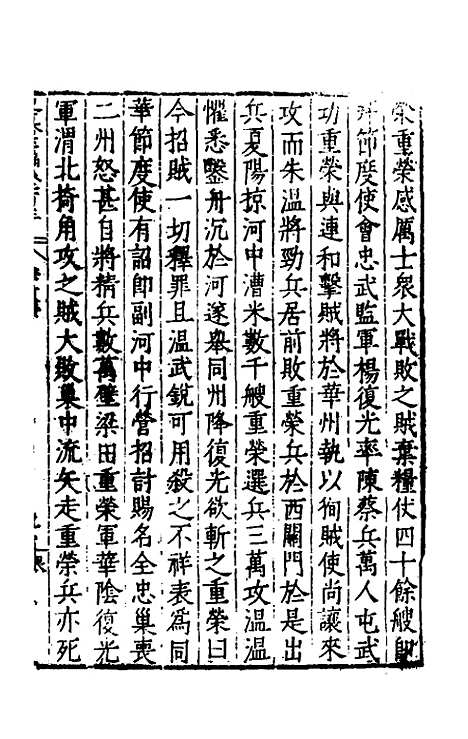 榮重榮感厲士衆大戰敗之賊棄糧仗四十餘艘卽
拜節度使會忠武監軍楊復光率陳蔡兵萬人屯武
功重榮與連和擊賊將於華州執以徇賊使尚讓來
攻而朱溫將勁兵居前敗重榮兵於西關門於是出
兵夏陽掠河中漕米數千艘重榮選兵三萬攻溫溫
懼悉鑿舟沉於河遂舉同州降復光欲斬之重榮曰
今招賊一切釋罪且溫武銳可用殺之不祥表爲同
華節度使有詔卽副河中行營招討賜名全忠巢喪
二州怒甚自將精兵數萬壁梁田重榮軍華陰復光
軍渭北掎角攻之賊大敗巢中流矢走重榮兵亦死